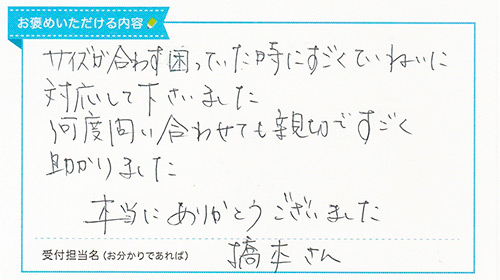 お褒めいただける内容
サイズが合わず困っていた時にすごくていねいに
対応して下さいました
何度問い合わせても親切ですごく
助かりました
本当にありがとうございました
受付担当名(お分かりであれば) 橋本さん